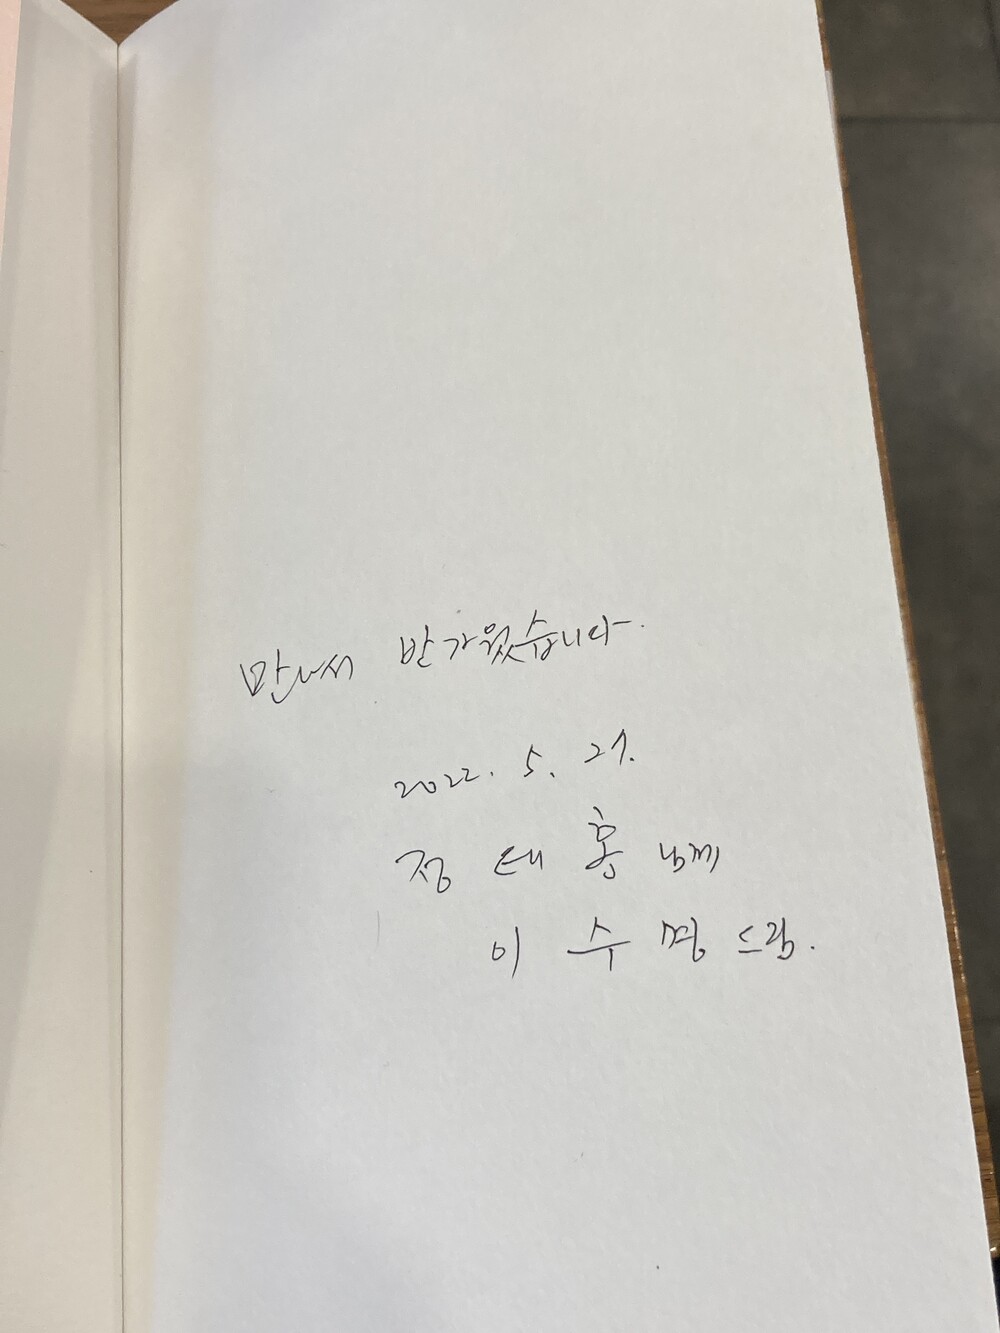 만나서 반가웠습니다.
2022. 5. 27.
정 태 홍 님께
이 수 명 드림.